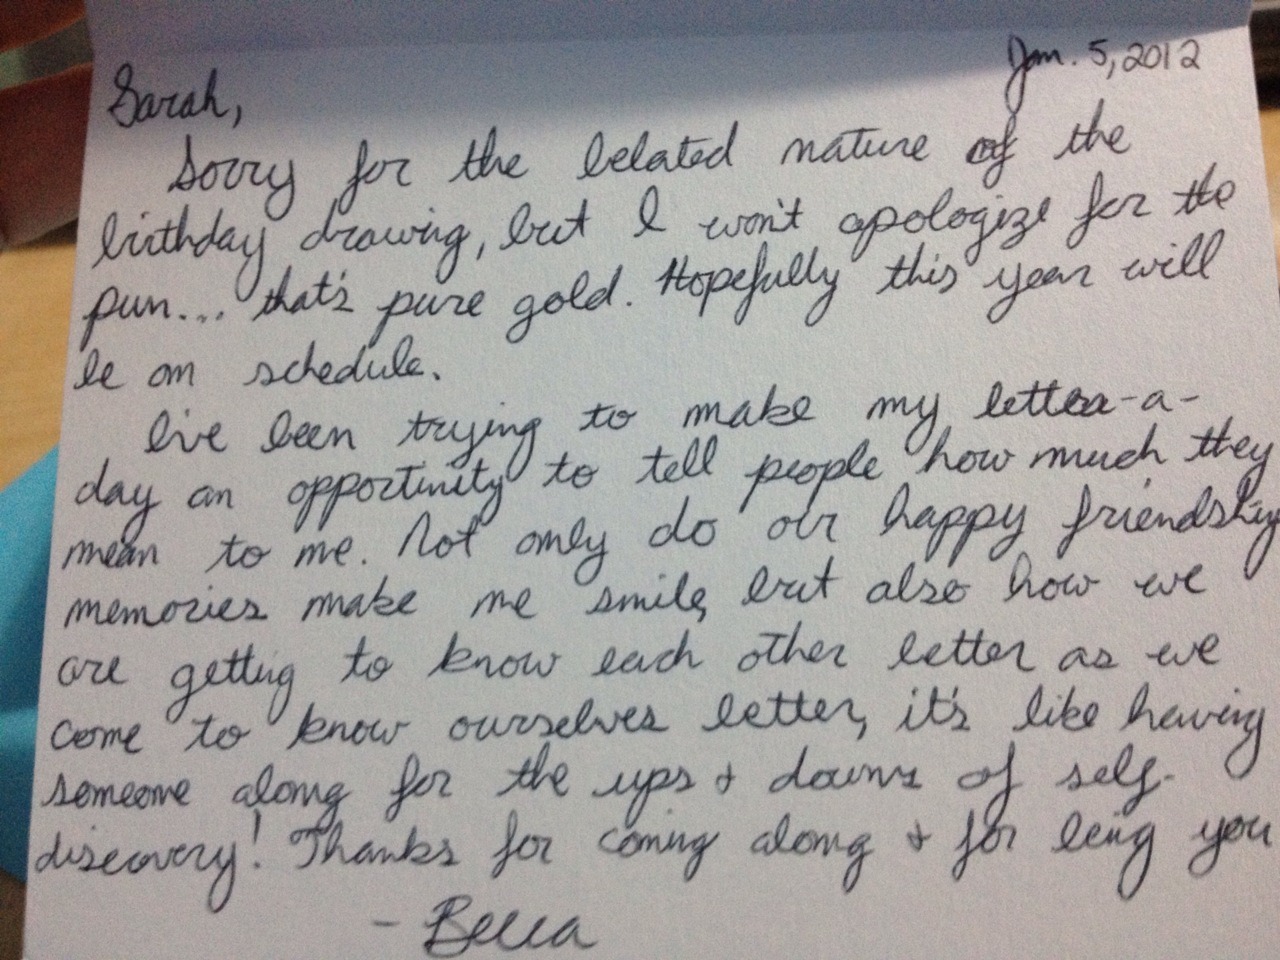 Jan. 5, 2012
Sarah,
Sorry for the belated nature of the
birthday drawing, but I won't apologize for the
pun... that's pure gold. Hopefully this year will
be on schedule.
I've been trying to make my letter-a-
day an opportunity to tell people how much they
mean to me. Not only do our happy friendship
memories make me smile, but also how we
are getting to know each other better as we
come to know ourselves better, it's like having
someone along for the ups + downs of self-
discovery! Thanks for coming along + for being you
- Becca